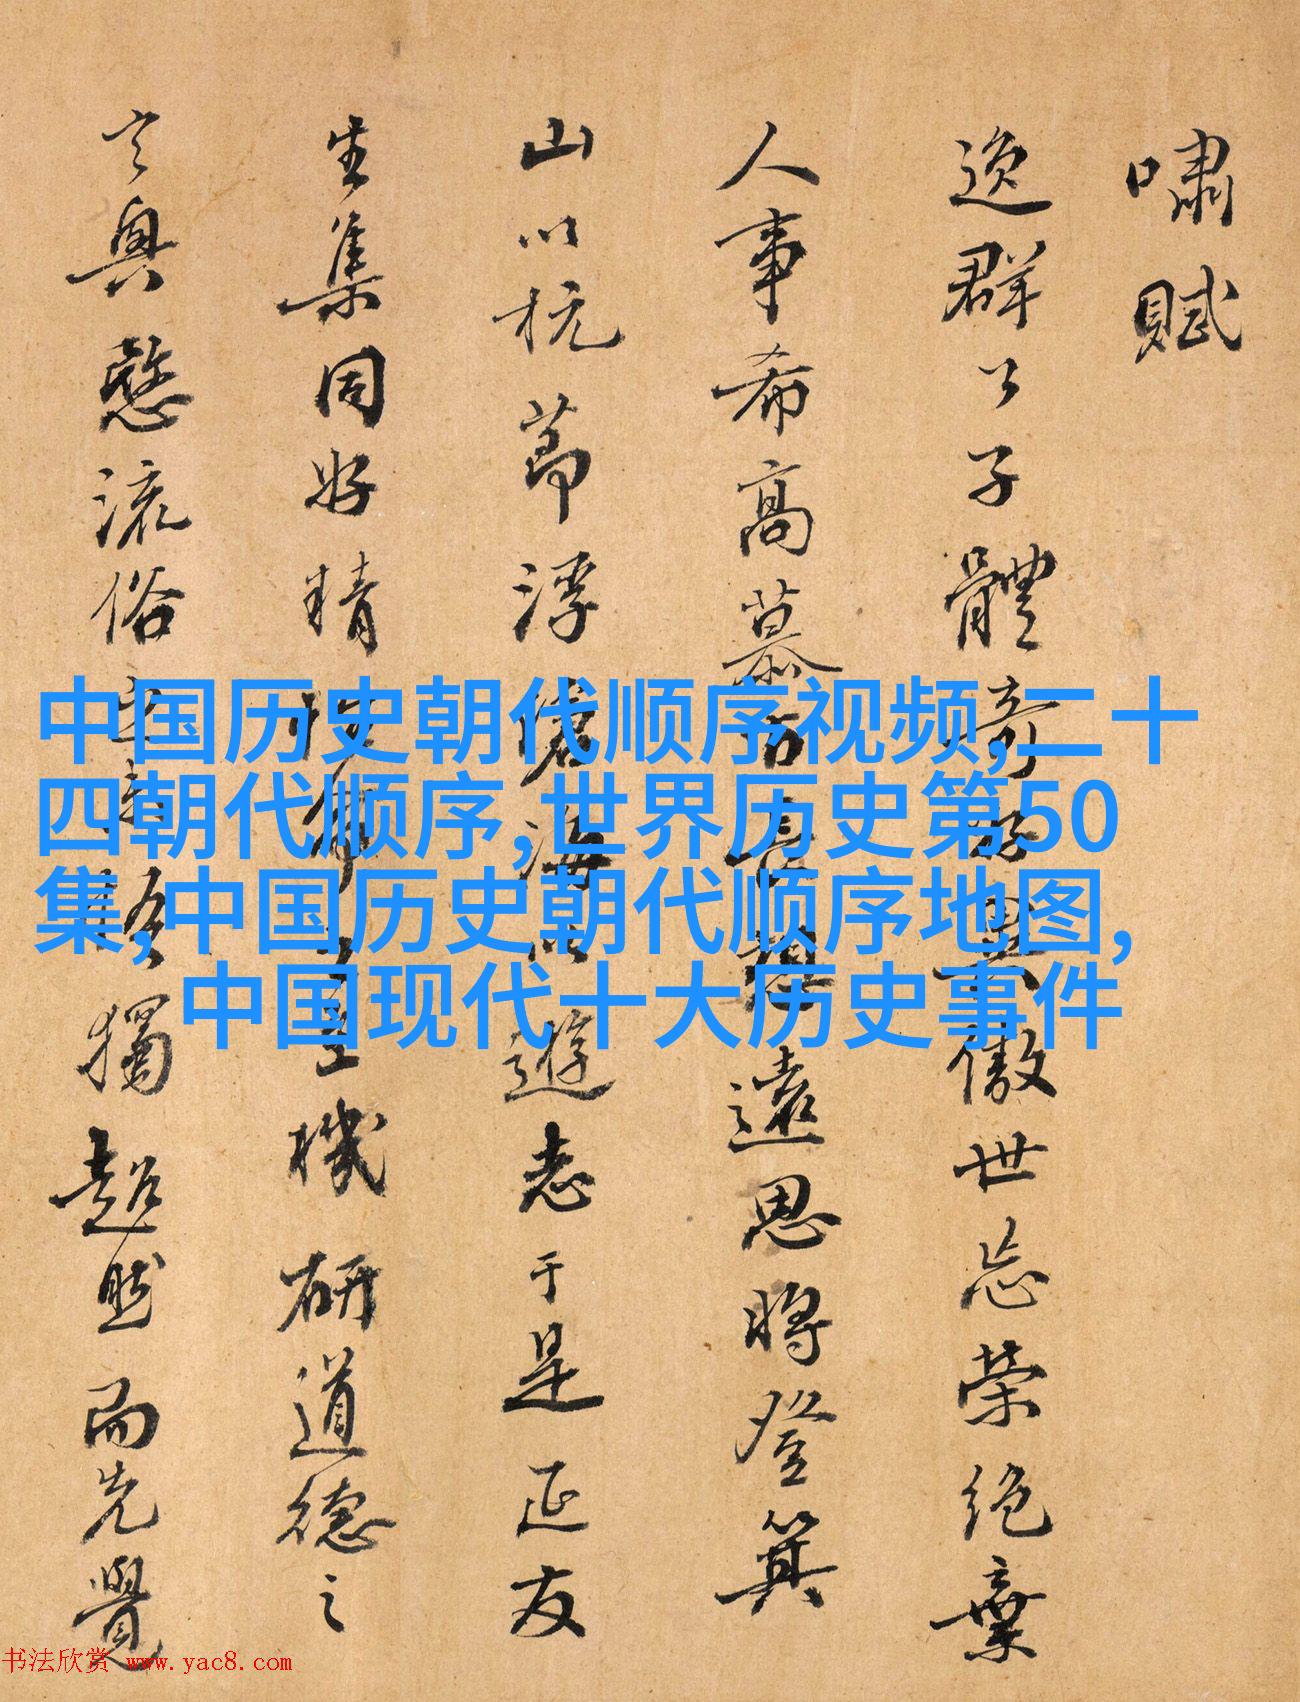 嘯賦
逸群公子體奇好異傲世忘榮絕棄
人事希高慕古長想遠思將登箕
山以抗節浮滄海以遊志于是延友
生集同好精性命之至機研道德之
玄奥愍流俗之未悟獨超然而先覺
中国历史朝代顺序视频,二十
四朝代顺序,世界历史第50
集,中国历史朝代顺序地图,
中国现代十大历史事件
书法欣赏 www.yac8.com